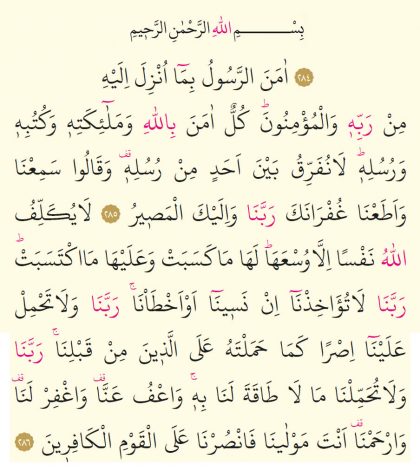 بِسْــــــــــمِ اللهِ الرَّحْمٰنِ الرَّحِيمِ
﴿٢٨٤﴾ اٰمَنَ الرَّسُولُ بِمَٓا اُنْزِلَ اِلَيْهِ
مِنْ رَبِّه۪ وَالْمُؤْمِنُونَۜ كُلٌّ اٰمَنَ بِاللّٰهِ وَمَلٰٓئِكَتِه۪ وَكُتُبِه۪
وَرُسُلِه۪ۜ لَانُفَرِّقُ بَيْنَ اَحَدٍ مِنْ رُسُلِه۪ۗ وَقَالُوا سَمِعْنَا
وَاَطَعْنَا غُفْرَانَكَ رَبَّنَا وَاِلَيْكَ الْمَص۪يرُ ﴿٢٨٥﴾ لَايُكَلِّفُ
اللّٰهُ نَفْسًا اِلَّاوُسْعَهَاۜ لَهَا مَاكَسَبَتْ وَعَلَيْهَا مَااكْتَسَبَتْۜ
رَبَّنَا لَاتُؤَاخِذْنَٓا اِنْ نَس۪ينَٓا اَوْاَخْطَأْنَاۚ رَبَّنَا وَلَاتَحْمِلْ
عَلَيْنَٓا اِصْرًا كَمَا حَمَلْتَهُ عَلَى الَّذ۪ينَ مِنْ قَبْلِنَاۚ رَبَّنَا
وَلَاتُحَمِّلْنَا مَا لَا طَاقَةَ لَنَا بِه۪ۚ وَاعْفُ عَنَّاۗ وَاغْفِرْ لَنَاۗ
وَارْحَمْنَاۗ اَنْتَ مَوْلٰينَا فَانْصُرْنَا عَلَى الْقَوْمِ الْكَافِر۪ينَ ﴿٢٨٦﴾